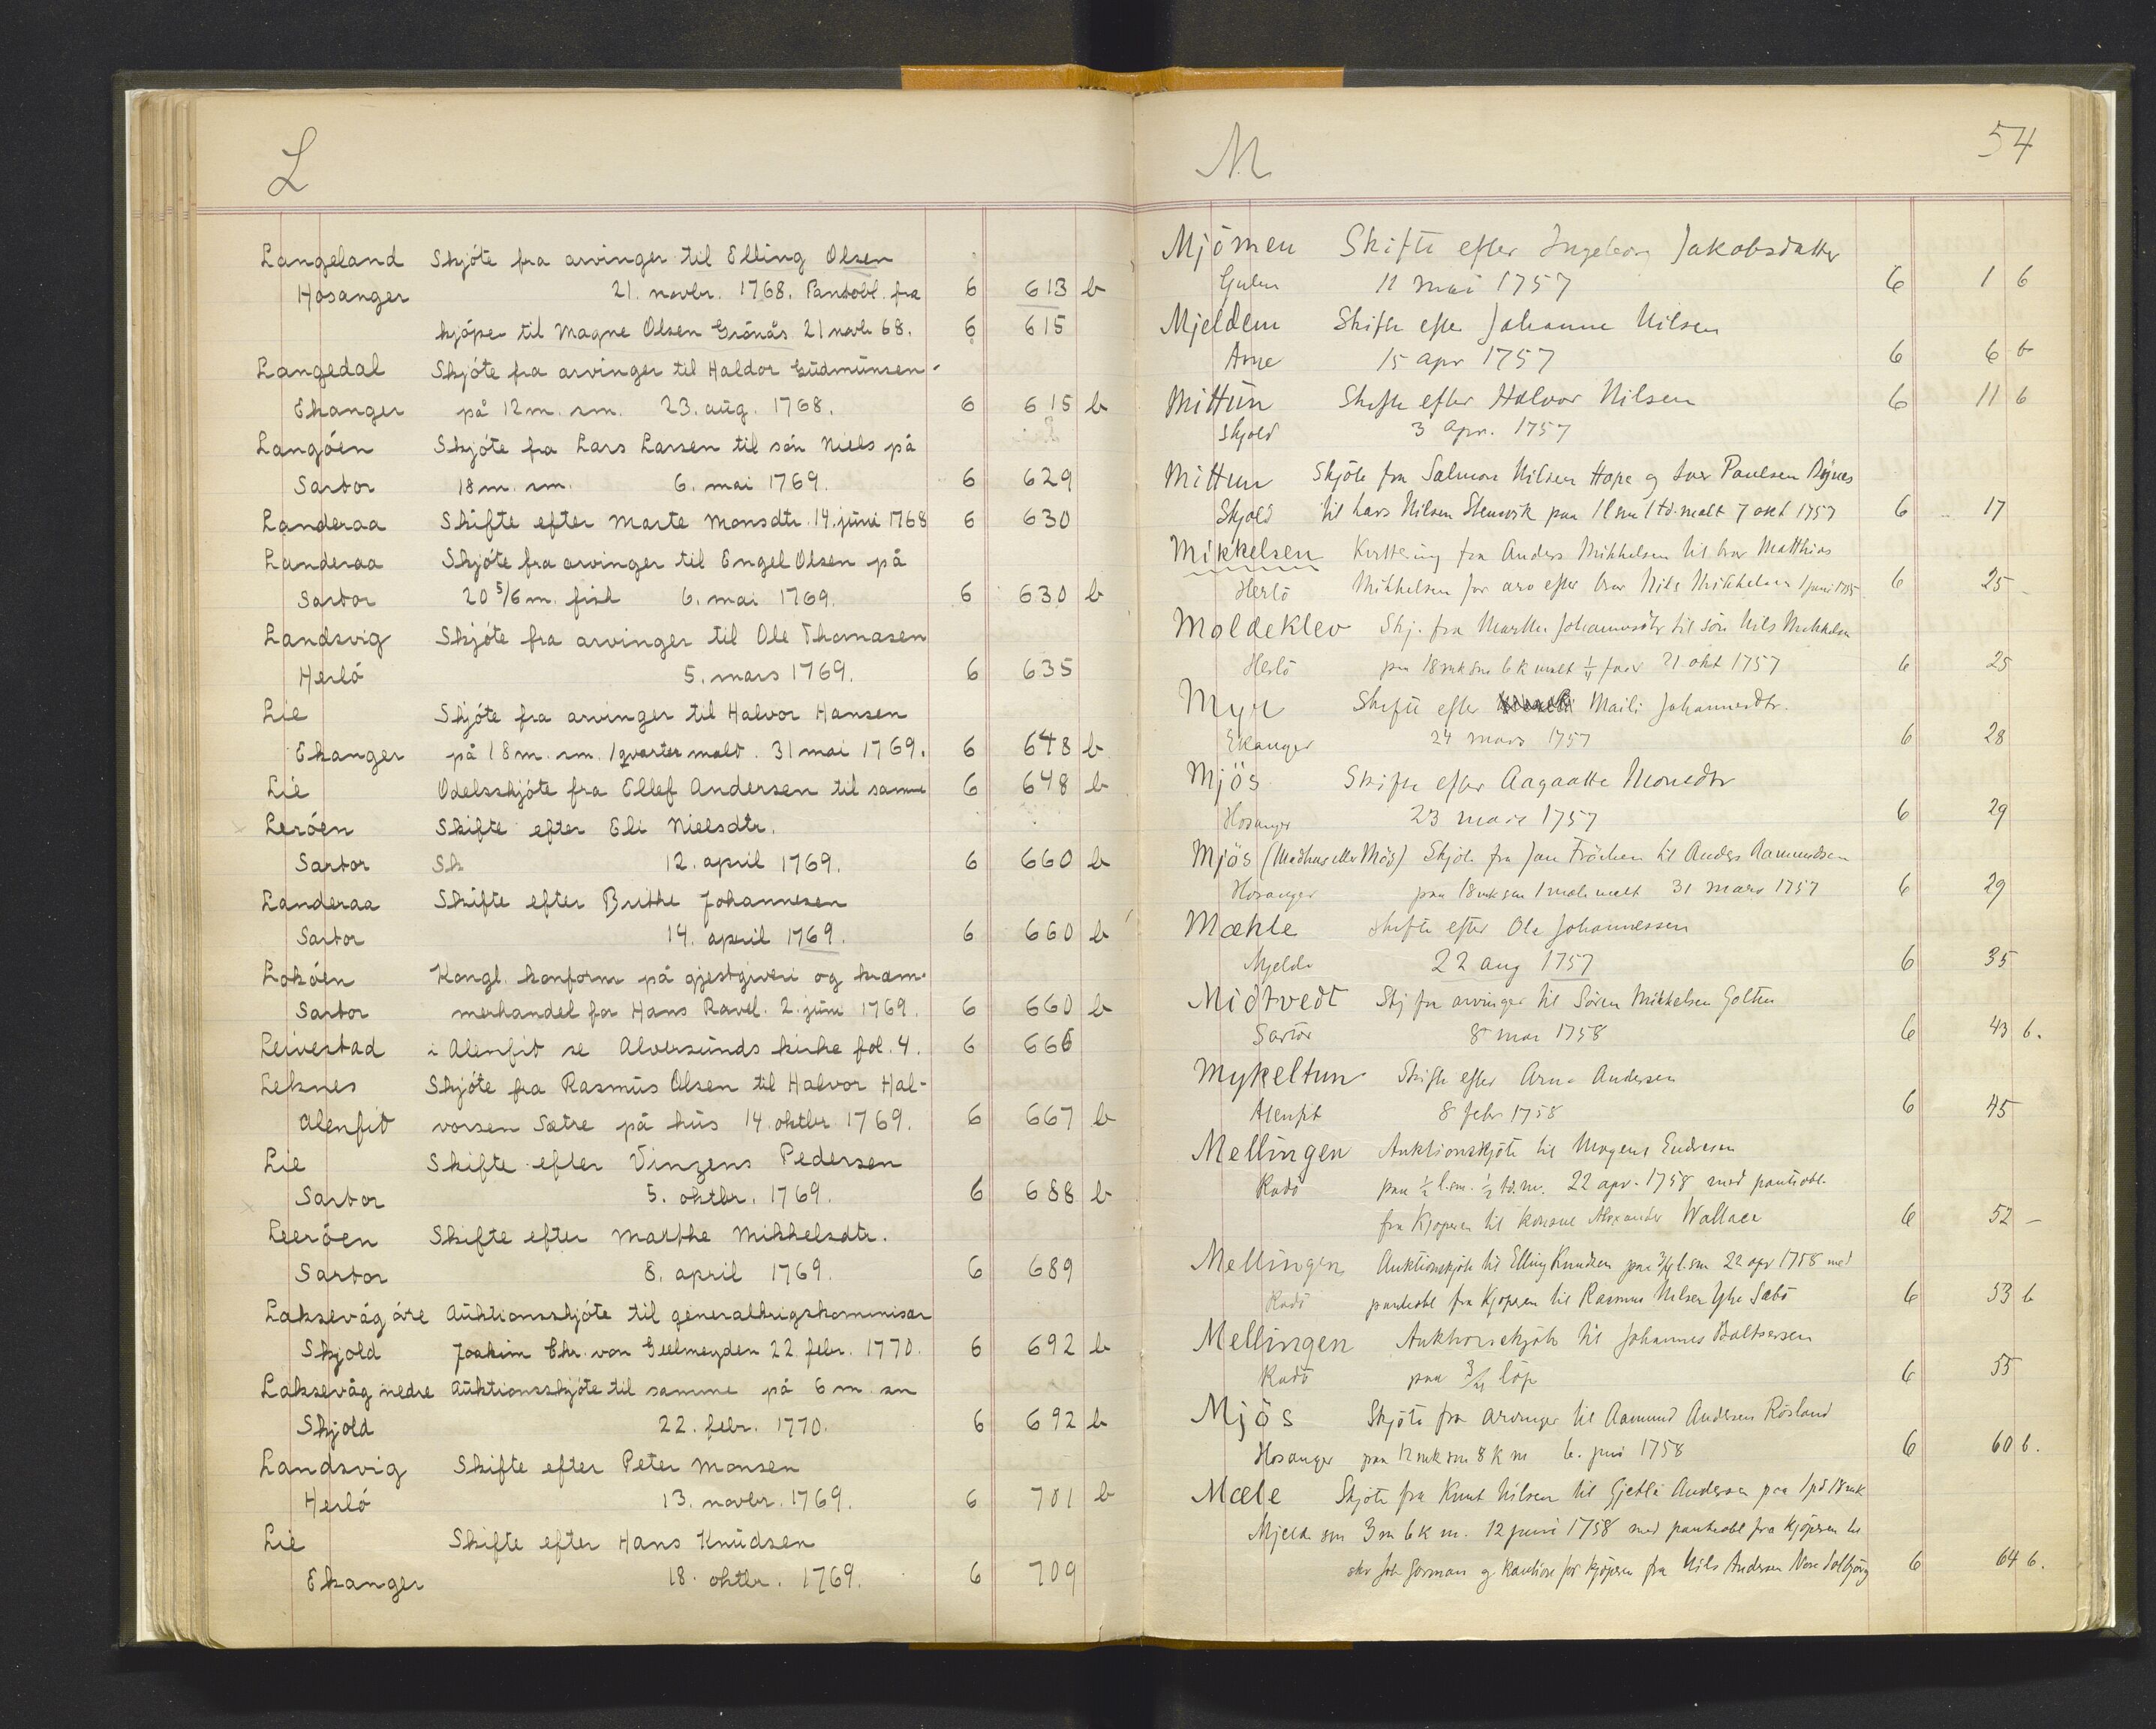 L
Langeland Skjóte fra arvinger til Elling Olsen
Hosanger 21. novbr. 1768. Pantobl. fra 6 613 b
kjóper til Magne Olsen Grónås 21 novb 68. 6 615
Langedal Skjóte fra arvinger til Haldor Gudmunsen
Ekanger på 12 m. sm. 23. aug. 1768. 6 615 b
Langóen Skjóte fra Lars Larsen til són Niels på
Sartor 18 m. sm. 6. mai 1769. 6 629
Landeraa Skifte efter Marte Monsdtr. 14. juni 1768 6 630
Landeraa Skjóte fra arvinger til Engel Olsen på
Sartor 20 5/6 m. fisk 6. mai 1769. 6 630 b
Landsvig Skjóte fra arvinger til Ole Thomasen
Herló 5. mars 1769. 6 635
Lie Skjóte fra arvinger til Halvor Hansen
Ekanger på 18 m. sm. 1 qvarter malt. 31 mai 1769. 6 648 b
Lie Odelsskjóte fra Ellef Andersen til samme 6 648 b
Leróen Skifte efter Eli Nielsdtr.
Sartor Sk 12. april 1769. 6 660 b
Landeraa Skifte efter Brithe Johannesen
Sartor 14. april 1769. 6 660 b
Lokóen Kongl. konform på gjestgiveri og kram-
Sartor merhandel for Hans Ravel. 2. juni 1769. 6 660 b
Leivestad i Alenfit se Alversunds kirke fol. 4. 6 666
Leknes Skjóte fra Rasmus Olsen til Halvor Hal-
Alenfit vorsen Sætre på hus 14. oktbr 1769. 6 667 b
Lie Skifte efter Vinzens Pedersen
Sartor 5. oktbr. 1769. 6 688 b
Leeróen Skifte efter Marthe Mikkelsdtr.
Sartor 8. april 1769. 6 689
Laksevåg óvre Auktionsskjóte til generalkrigskommisær
Skjold Joakim Chr. von Geelmeyden 22. febr. 1770. 6 692 b
Laksevåg nedre Auktionsskjóte til samme på 6 m. sm
Skjold 22. febr. 1770. 6 692 b
Landsvig Skifte efter Peter Monsen
Herló 13. novbr. 1769. 6 701 b
Lie Skifte efter Hans Knudsen
Ekanger 18. oktbr. 1769. 6 709
M 54
Mjömen Skifte efter Ingeborg Jakobsdatter
Gulen 11 mai 1757 6 1 b
Mjeldem Skifte efter Johanne Nilsen
Arne 15 apr 1757 6 6 b
Mittun Skifte efter Halvor Nilsen 6 11 b
Skjold 3 apr. 1757
Mittun Skjöte fra Salmon Nilsen Hope og Iver Paulsen
Skjold til Lars Nilsen Stensvik paa 1 l sm 1 td. malt 7 okt 1757 6 17
Mikkelsen Kvittering fra Anders Mikkelsen til bror Matthias
Herlö Mikkelsen for arv efter bror Nils Mikkelsen 1 juni 6 25
Moldeklev Skj. fra Marthe Johannesdtr til sön Nils Mikkelsen
Herlö paa 18 mk sm 6 k malt 21 okt 1757 6 25
Myr Skifte efter Maili Johannesdtr.
Ekanger 24 mars 1757 6 28
Mjös Skifte efter Aagaatte Monsdtr
Hosanger 23 mars 1757 6 29
Mjös (Madhus eller Mös) Skjöte fra Jan Fröchen til Anders Aamundsen
Hosanger paa 18 mk sm 1 mæle malt 31 mars 1757 6 29
Mæhle Skifte efter Ole Johannessen
Mjelde 22 aug 1757 6 35
Midtvedt Skj fra arvinger til Sören Mikkelsen Golten
Sartor 8 mai 1758 6 43 b.
Mykeltun Skifte efter Arne Andersen
Alenfit 8 febr 1758 6 45
Mellingen Auktionsskjöte til Mogens Endresen
Radö paa ½ l. sm. ½ td. m. 22 apr. 1758 med panteobl.
fra kjöperen til konsul Alexander Wallace 6 52 –
Mellingen Auktionskjöte til Elling Knudsen paa 3/4 l. sm 22 apr 1758 med
Radö panteobl fra kjöperen til Rasmus Nilsen Ytre Sæbö 6 53 b
Mellingen Auktionsskjöte til Johannes Baltsersen
Radö paa 3/4 löp 6 55
Mjös Skjöte fra arvinger til Aamund Andersen Rösland
Hosanger paa 12 mk sm 8 k m 6. juni 1758 6 60 b.
Mæle Skjöte fra Knut Nilsen til Gjertli Andersen paa 1 pd 18 mk
Mjelde sm 3 m 6 k m. 12 juni 1758 med panteobl fra kjöperen til
skr Joh Gorman og kaution for kjöperen fra Nils Andersen 6 64 b.